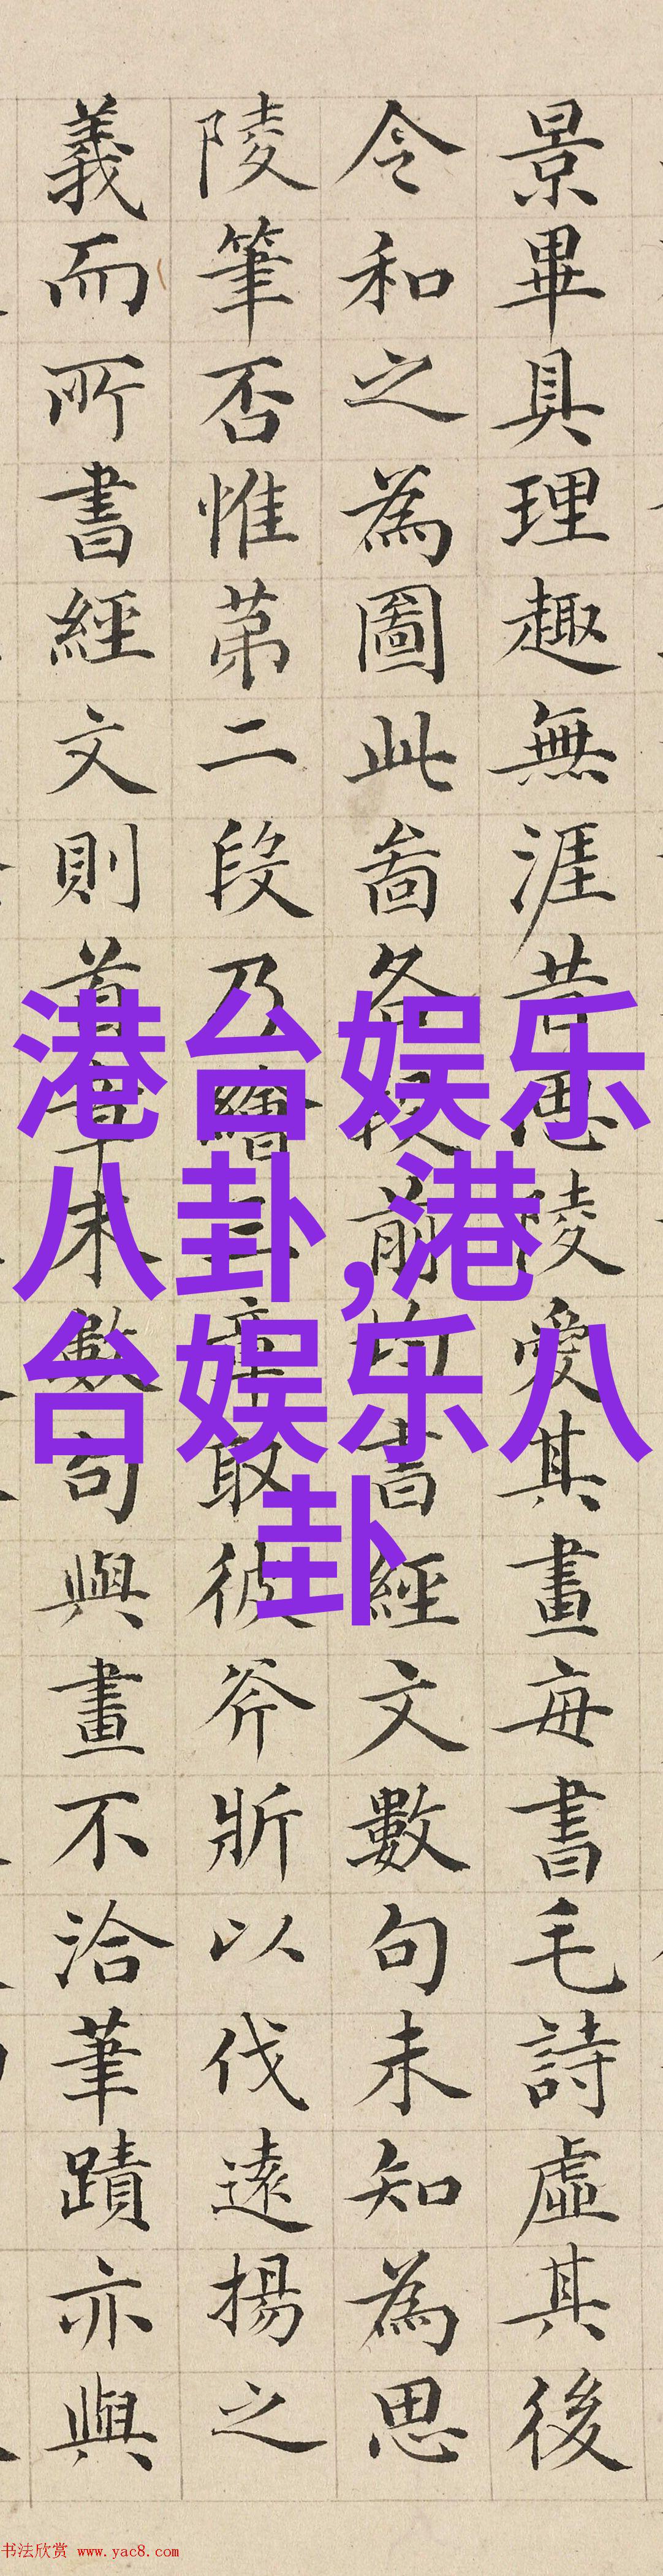 景畢具理趣無涯昔思陵愛其畫每書毛詩虛其後
令和之為圖此啚各段前均書經文數句未知為思
陵筆否惟苐二段乃繪三章取彼斧斨以伐遠揚之
義而所書經文則首章末數句與畫不洽筆蹟亦與
港台娱乐
八卦,港
台娱乐八
卦
书法欣赏 www.yac8.com